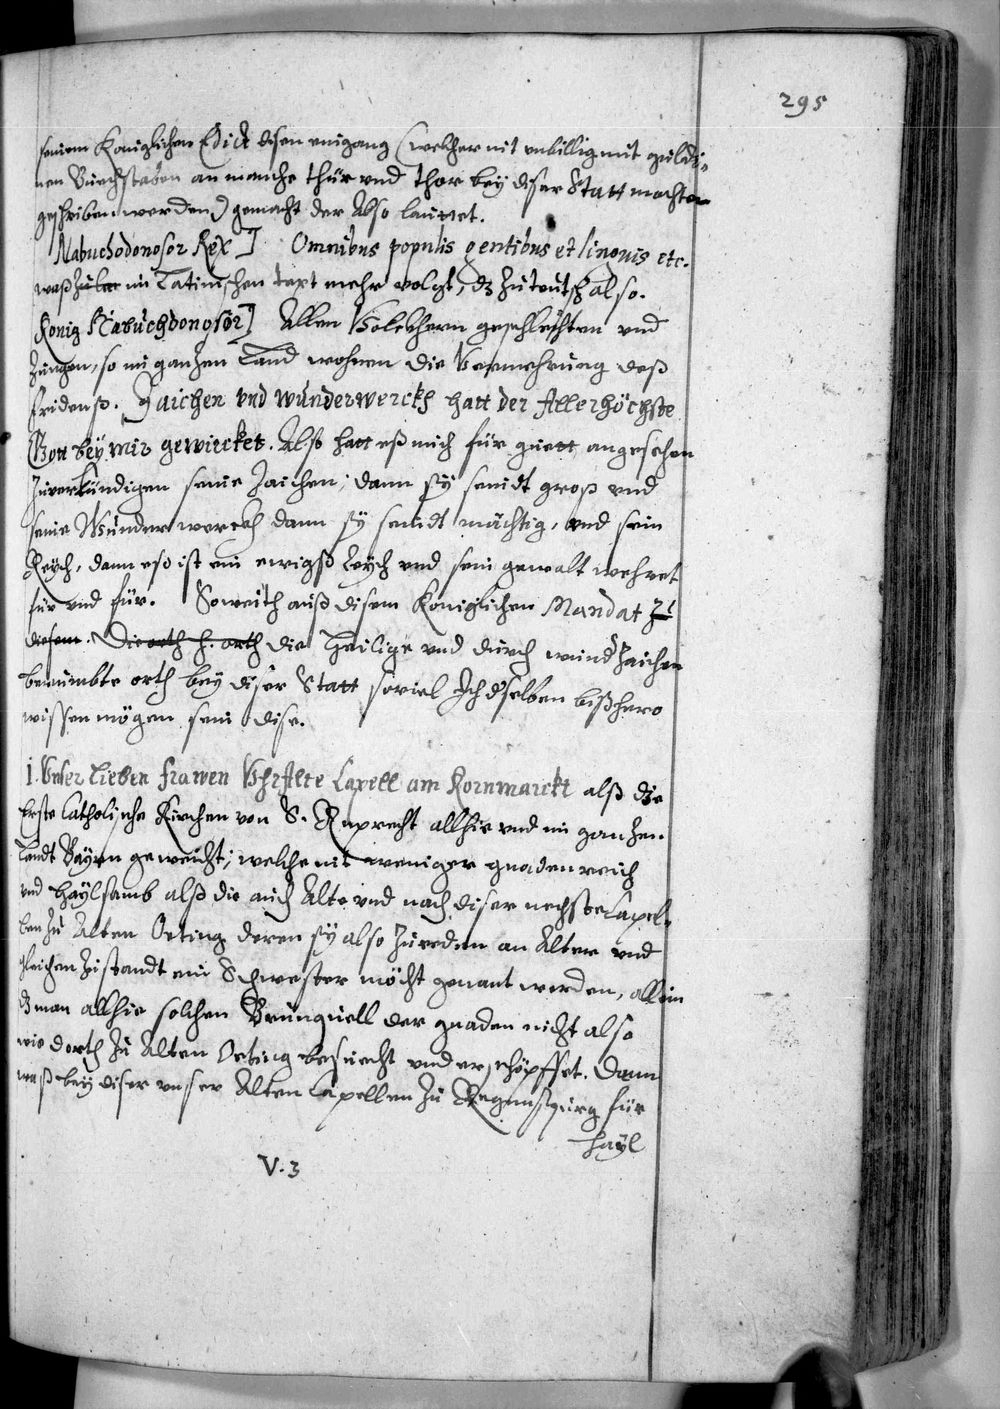 295
seinem Koniglichen Edict disen eingang (welcher nit unbillig mit guldi-
nen Buechstaben an manche thür vnd thor bey diser Statt möchten
geschriben werden) gemacht der Also lauttet.
Nabuchodonosor Rex] Omnibus populis gentibus et linguis etc.
waß im Latinischen text mehr volgt, dz zu teutsch also.
Konig Nabuchdonosor] Allen Volckhern geschlechten vnd
Zungen, so im ganzen Land wohnen die Vermehrung deß
fridenß. Zaichen vnd wunderwerckh hatt der Allerhöchste
Gott bey mir gewircket. Also hatt eß mich für guett angesehen
Zuverkündigen seine Zaichen, dann sy seindt groß vnd
seine Wunderwerckh dann sy seindt mächtig, vnd sein
Reych, dann eß ist ein ewigß Reych vnd sein gewalt wehret
für vnd für. Soweith auß disem Koniglichen Mandat Zu
diesem. Die orth h. orth die Heilige vnd durch wund Zaichen
benambte orth bey diser Statt soviel Ich dselben bißhero
wissen mögen sein dise.
1. Vnser lieben frawen Vhralte Capell am Kornmarckt alß die
Erste Catholische Kirchen von S. Ruprecht allhie vnd im ganzen
Landt Bayrn geweicht; welche nit weniger gnadenreich
vnd haylsamb alß die auch Alte vnd nach diser nechste Capel-
len zu Alten Oeting deren sy also zureden an Alter vnd
gleichen Zustandt ein Schwester möcht genant werden, allein
dz man allhie solchen Brunquell der gnaden nicht also
wie dorth zu Alten Oeting besuecht vnd erschöpffet. Dann
waß bey diser vnser Alten Capellen zu Regenspurg für
hayl
V. 3